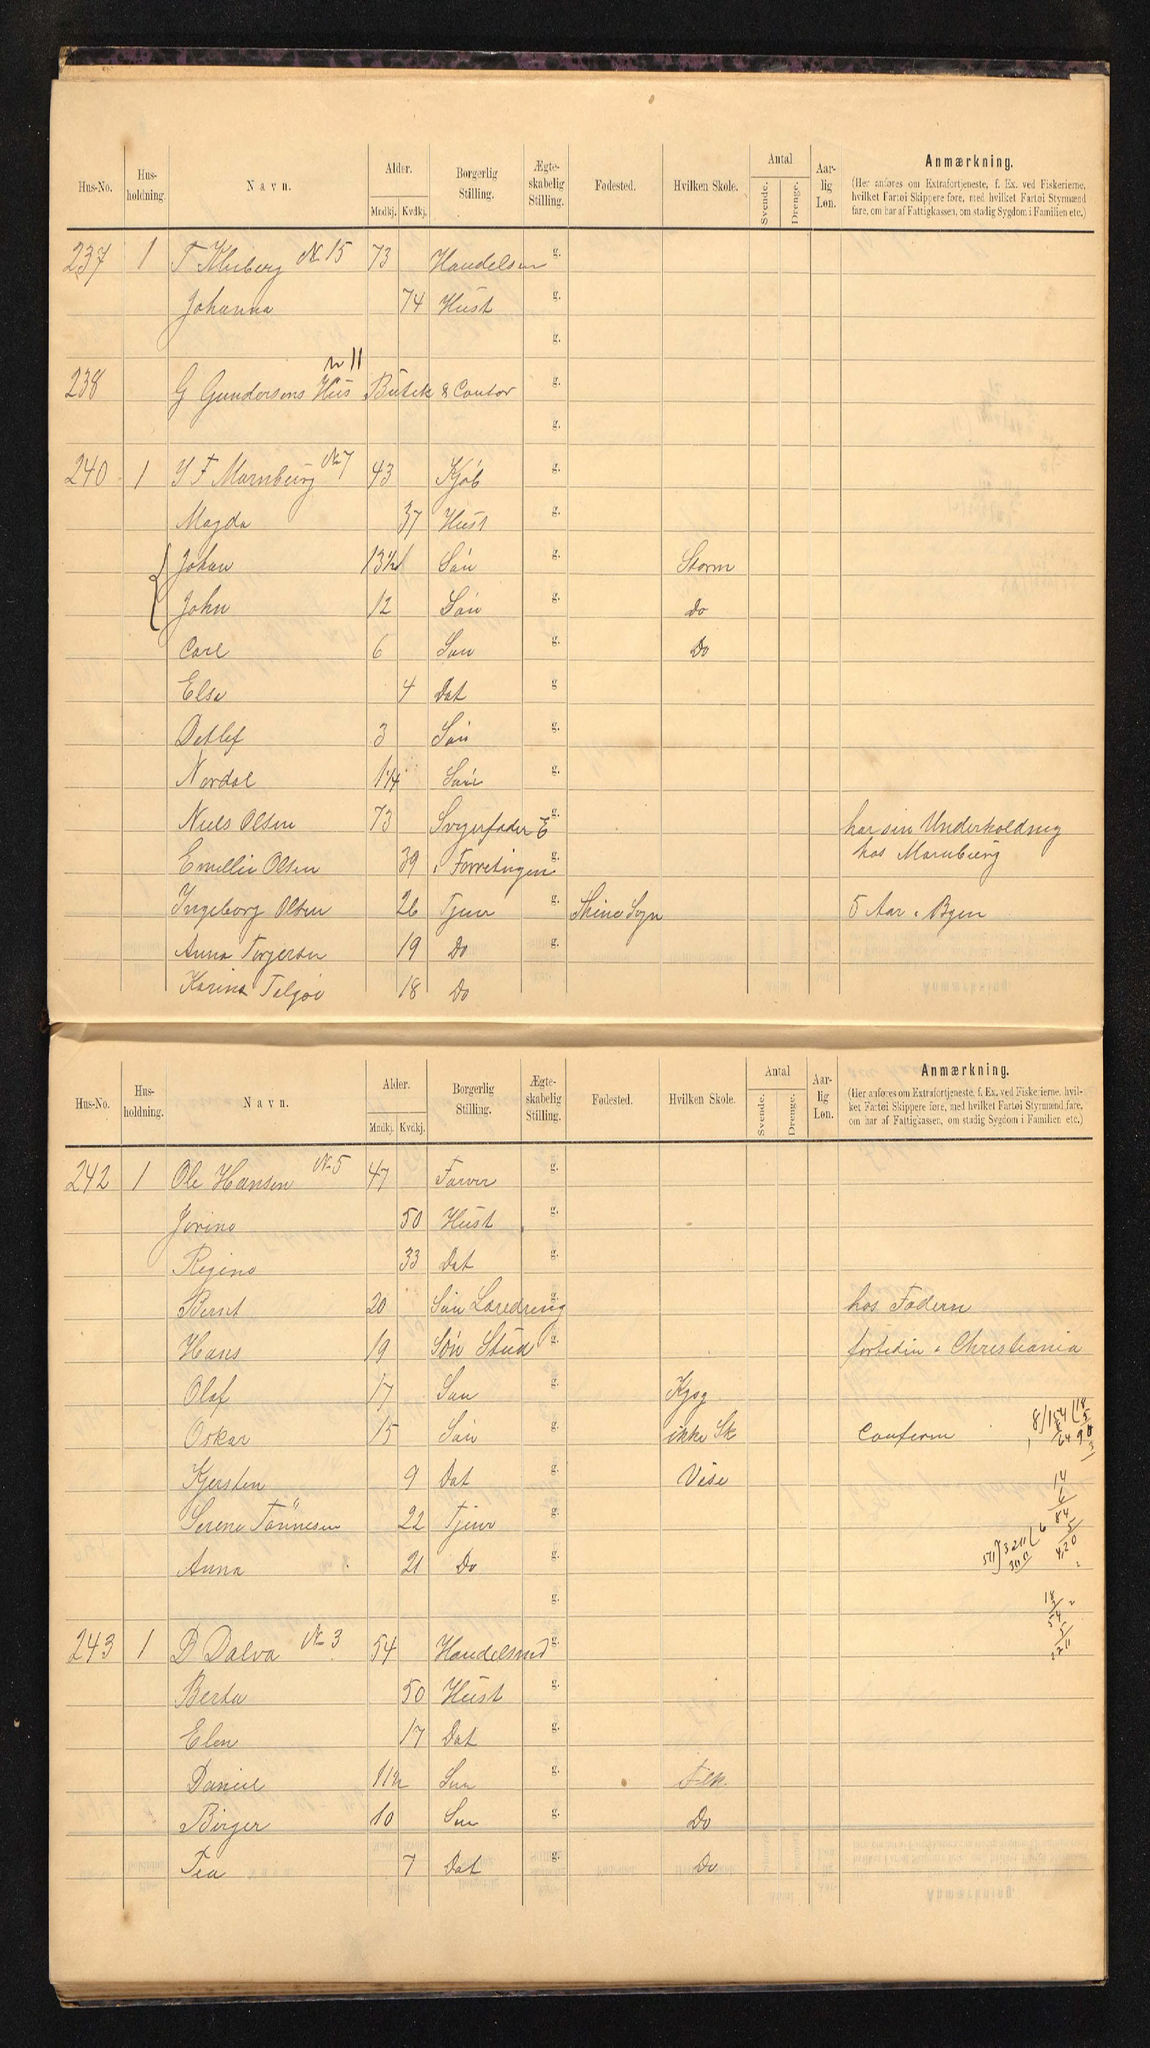 Hus-No. Hus-holdning. Navn. Alder. Mndkj. Kvdkj. Borgerlig Stilling. Ægte-skabelig Stilling. Fødested. Hvilken Skole. Antal Svende. Drenge. Aar-lig Løn. Anmærkning.
(Her anføres om Extrafortjeneste, f. Ex. ved Fiskerierne,
hvilket Fartøi Skippere føre, med hvilket Fartøi Styrmænd
fare, om har af Fattigkassen, om stadig Sygdom i Familien etc.)
237 1 No 15 73 g.
Johanna 74 Hust g.
g.
No 11
238 G Gundersens Hus Butik & Contor g.
g.
240 1 Marnburg No 7 43 Kjøb g.
Magda 37 Hust g.
Johan 13½ Søn g. Storm
John 12 Søn g. Do
Carl 6 Søn g. Do
Else 4 Dat g
Detlef 3 Søn g.
Nordal 1¼ Søn g.
Niels Olsen 73 Svigerfader E g. har sin Underholdning
Emellie Olsen 39 i Forretningen g. hos Marnburg
Ingeborg Olsen 26 Tjener g. Sogn 5 Aar i Byen
Anna Torgersen 19 Do g.
Karina 18 Do
Hus-No. Hus-holdning. Navn. Alder. Mndkj. Kvdkj. Borgerlig Stilling. Ægte-skabelig Stilling. Fødested. Hvilken Skole. Antal Svende. Drenge. Aar-lig Løn. Anmærkning.
(Her anføres om Extrafortjeneste, f. Ex. ved Fiskerierne, hvil-
ket Fartøi Skippere føre, med hvilket Fartøi Styrmænd fare,
om har af Fattigkassen, om stadig Sygdom i Familien etc.)
242 1 Ole Hansen No 5 47 Farver g.
Jorine 50 Hust g.
Regine 33 Dat g.
Bernt 20 Søn Læredreng g. hos Faderen
Hans 19 Søn Stud g. fortiden i Christiania
Olaf 17 Søn g.
Oskar 15 Søn g. ikke Sk Conferm
Kjersten 9 Dat g.
Serene Tönnesen 22 Tjener g.
Anna 21 Do g.
g.
243 1 D Dalva No 3 54 Handelsmd g.
Berta 50 Hust g.
Elen 17 Dat g.
Daniel 11½ Søn g.
Birger 10 Søn g. Do
Tea 7 Dat g. Do